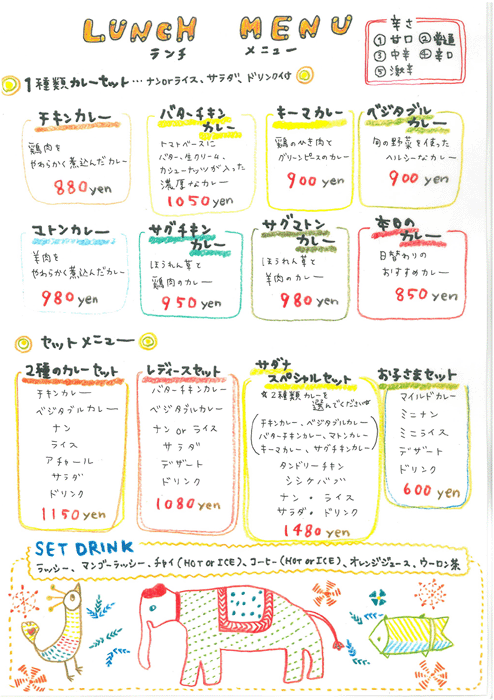 LUNCH MENU
ランチ メニュー
辛さ
①甘口 ②普通
③中辛 ④辛口
⑤激辛
1種類カレーセット…ナンorライス、サラダ、ドリンク付
チキンカレー
鶏肉を
やわらかく煮込んだカレー
880yen
バターチキン
カレー
トマトベースに
バター、生クリーム、
カシューナッツが入った
濃厚なカレー
1050yen
キーマカレー
鶏のひき肉と
グリーンピースのカレー
900yen
ベジタブル
カレー
旬の野菜を使った
ヘルシーなカレー
900yen
マトンカレー
羊肉を
やわらかく煮込んだカレー
980yen
サグチキン
カレー
ほうれん草と
鶏肉のカレー
950yen
サグマトン
カレー
ほうれん草と
羊肉のカレー
980yen
本日の
カレー
日替わりの
おすすめカレー
850yen
セットメニュー
2種のカレーセット
チキンカレー
ベジタブルカレー
ナン
ライス
アチャール
サラダ
ドリンク
1150yen
レディースセット
バターチキンカレー
ベジタブルカレー
ナン or ライス
サラダ
デザート
ドリンク
1080yen
サグナ
スペシャルセット
☆2種類カレーを
選んでください☆
(チキンカレー、ベジタブルカレー
バターチキンカレー、マトンカレー
キーマカレー、サグチキンカレー)
タンドリーチキン
シシケバブ
ナン・ライス
サラダ・ドリンク
1480yen
お子さまセット
マイルドカレー
ミニナン
ミニライス
デザート
ドリンク
600yen
SET DRINK
ラッシー、マンゴーラッシー、チャイ(HOT or ICE)、コーヒー(HOT or ICE)、オレンジジュース、ウーロン茶